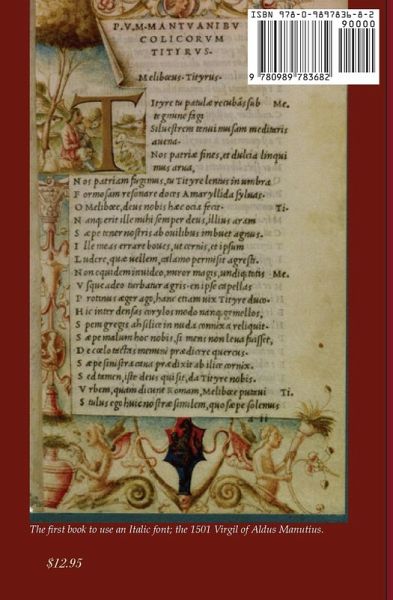 ISBN 978-0-9897836-8-2
90000
9 780989 783682
P. V. M. MANTVANI BV
COLICORVM
TITYRVS.
Melibœus. Tityrus.
Ityre tu patulæ recubãs sub Me.
tegmine fagi
Siluestrem tenui musam meditaris
auena.
Nos patriæ fines, et dulcia linqui
mus arua,
Nos patriam fugimus, tu Tityre lentus in umbra
Formosam resonare doces Amaryllida syluas.
O Melibœe, deus nobis hæc ocia fecit. Ti.
Nanq; erit ille mihi semper deus, illius aram
Sæpe tener nostris ab ouilibus imbuet agnus.
Ille meas errare boues, ut cernis, et ipsum
Ludere, quæ uellem, calamo permisit agresti.
Non equidem inuideo, miror magis, undiq; totis Me.
Vsque adeo turbatur agris. en ipse capellas
Protinus æger ago, hanc etiam uix Tityre duco.
Hic inter densas corylos modo nanq; gemellos,
Spem gregis ah silice in nuda connixa reliquit.
Sæpe malum hoc nobis, si mens non leua fuisset,
De cœlo tactas memini prædicere quercus.
Sæpe sinistra caua prædixit ab ilice cornix.
Sed tamen, iste deus qui sit, da Tityre nobis.
Vrbem, quam dicunt Romam, Melibœe putaui Ti.
Stultus ego huic nostræ similem, quo sæpe solemus
The first book to use an Italic font; the 1501 Virgil of Aldus Manutius.
$12.95